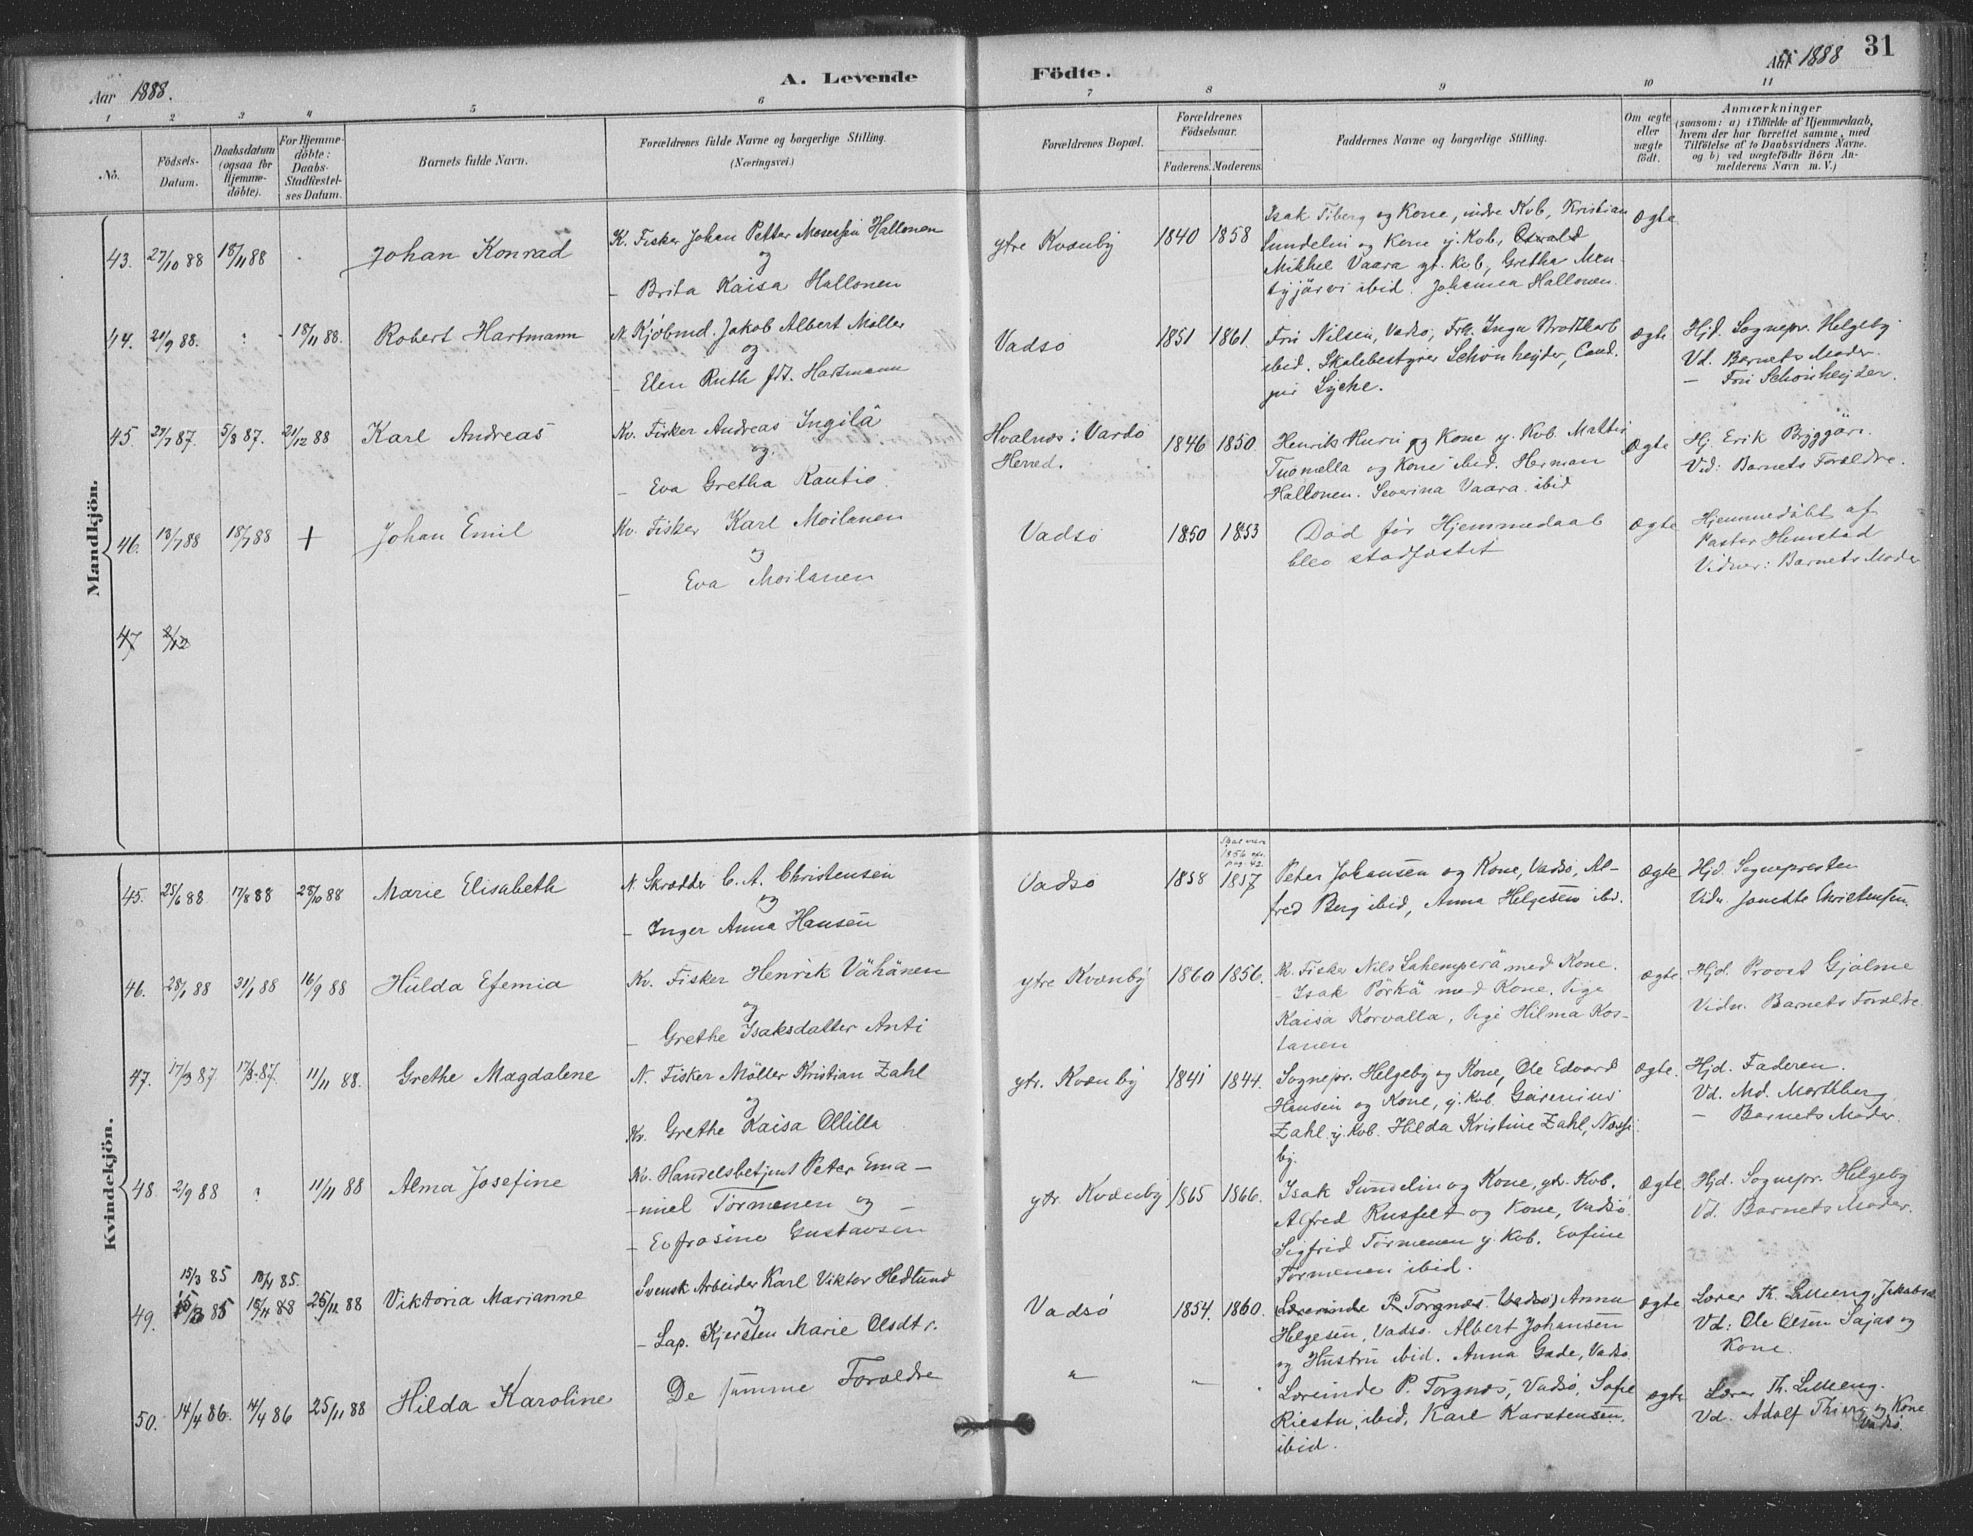 Aar 1888.
A. Levende Födte.
Aar 1888
31
1 2 3 4 5 6 7 8 9 10 11
No.
Födsels-
Datum.
Daabsdatum
(ogsaa for
Hjemme-
döbte).
For Hjemme-
döbte:
Daabs-
Stadfæstel-
ses Datum.
Barnets fulde Navn.
Forældrenes fulde Navne og borgerlige Stilling.
(Næringsvei.)
Forældrenes Bopæl.
Forældrenes
Födselsaar.
Faderens. Moderens.
Faddernes Navne og borgerlige Stilling.
Om ægte
eller
uægte
födt.
Anmærkninger
(saasom: a) i Tilfælde af Hjemmedaab,
hvem der har forrettet samme, med
Tilföielse af to Daabsvidners Navne.
og b) ved uægtefödte Börn An-
melderens Navn m. V.)
Mandkjön.
43. 27/10 88 18/11 88 Johan Konrad
K. Fisker Johan Petter Mosessen Hallonen
og
– Brita Kaisa Hallonen
ytre Kvænby 1840 1858
Isak Tiberg og Kone, indre Kvb, Kristian
Sundelin og Kone y. Kvb,
Mikkel Vaara yt. Kvb, Gretha Men-
tyjärvi ibid. Johanna Hallonen.
ægte
44. 21/9 88. 18/11 88. Robert Hartmann
N. Kjøbmd. Jakob Albert Møller
og
– Elen Ruth fdt. Hartmann
Vadsø 1851 1861.
Fru Nilsen, Vadsø, Frk. Inga Brodtkorb
ibid. Skolebestyrer Schønheyder, Cand.
jur Lycke.
ægte
Hjd. Sognepr. Helgeby
Vd. Barnets Moder.
– Fru Schönheyder.
45. 29/7 87. 5/8 87. 21/12 88 Karl Andreas
Kv. Fisker Andreas Ingilä
og
– Eva Gretha Rautio.
Hvalnæs i Vardø
Herred.
1846 1850
Henrik Kuru og Kone y. Kvb. Mattis
Tuomella og Kone ibid. Herman
Hallonen. Severina Vaara ibid
ægte
Hj. Erik Bryggäri.
Vid: Barnets Forældre.
46. 13/7 88 18/7 88 + Johan Emil
Kv. Fisker Karl Moilanen
og
– Eva Moilanen
Vadsø 1850 1853
Død før Hjemmedaab
blev stadfæstet
ægte
Hjemmedøbt af
Pastor Hemstad
Vidner: Barnets Moder
47 2/12
Kvindekjön.
45. 25/6 88 17/8 88 28/10 88 Marie Elisabeth
N. Skrædder C. A. Christensen
og
– Inger Anna Hansen
Vadsø 1858
Skal være
1856
pag 42.
1857
Peter Johansen og Kone, Vadsø, Al-
fred Berg ibid, Anna Helgesen ibd.
ægte
Hjd. Sognepresten
Vidn. Janette Christensen.
46. 28/1 88 31/1 88 16/9 88 Hulda Efemia
Kv. Fisker Henrik Vähänen
og
– Grethe Isaksdatter Anti
ytre Kvænby 1860 1856.
K. Fisker Nils Lahenperä med Kone.
– Isak Pörkä med Kone. Pige
Kaisa Korvalla, Pige Hilma Kos-
tanen
ægte
Hjd. Provst Gjølme
Vidn. Barnets Forældre
47. 17/3 87 17/3 87. 11/11 88. Grethe Magdalene
N. Fisker Møller Kristian Zahl
og
Kv. Grethe Kaisa Ollilla
ytr. Kvænby 1841 1844.
Sognepr. Helgeby og Kone, Ole Edvard
Hansen og Kone, y. Kvb. Garenius
Zahl y. Kvb. Hilda Kristine Zahl, Næsse-
by.
ægte.
Hjd. Faderen.
Vd. Md. Mortberg
– Barnets Moder.
48. 2/9 88 ? 11/11 88 Alma Josefine
Kv. Handelsbetjent Peter Ema-
nuel Tormenen og
– Eufrosine Gustavsen
ytr. Kvænby 1865 1866.
Isak Sundelin og Kone, ytr. Kvb.
Alfred Rusfelt og Kone, Vadsø
Sigfrid Tormenen y. Kvb. Eufine
Tormenen ibid.
ægte
Hjd. Sognepr. Helgeby
Vd. Barnets Moder.
49. 15/3 85 18/4 85. 25/11 88 Viktoria Marianne
Svensk Arbeider Karl Viktor Hedlund
og
– Lap. Kjersten Marie Olsdtr.
Vadsø 1854. 1860.
Lærerinde P. Torgnæs. Vadsø, Anna
Helgesen, Vadsø. Albert Johansen
og Hustru ibid. Anna Gade, Vadsø
ægte
Lærer Th. Lilleeng, Jakobsel
Vd: Ole Olsen Sajas og
Kone.
50. 14/4 86. 14/4 86 25/11 88 Hilda Karoline
De samme Forældre
" "
Lærerinde P. Torgnæs, Vadsø, Sofie
Riesta, ibid, Karl Karstensen.
ibid.
ægte
Lærer Th. Lilleeng.
Vd. Adolf Thierg og Kone
Vadsø.